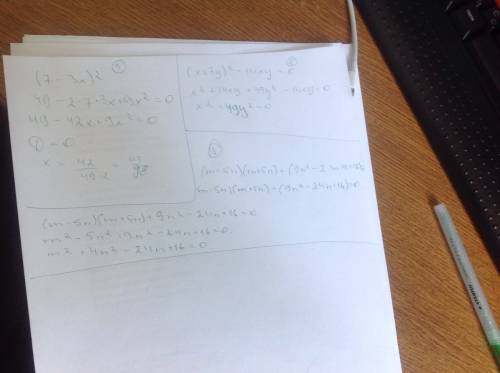 ①
(7-3x)²
49-2·7·3x+9x²=0
49-42x+9x²=0
D=0
x=
②
(x+7y)²-14xy=0
x²+14xy+49y²-14xy=0
x²+49y²=0
③
(m-5n)(m+5n)+(9n²-24n+16)=0
(m-5n)(m+5n)+9n²-24n+16=0
m²-5n²+9n²-24n+16=0
m²+4n²-24n+16=0